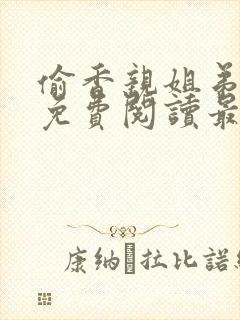 偷香親姐弟
免費閱讀最
康納·拉比諾維